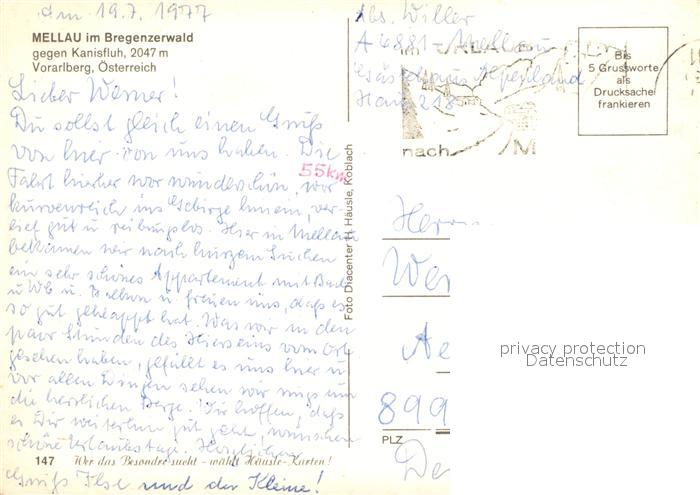 am 19.7.1977
MELLAU im Bregenzerwald
gegen Kanisfluh, 2047 m
Vorarlberg, Österreich
Lieber Werner!
Du sollst gleich einen Gruß
von hier von uns haben. Die
Fahrt hierher war wunderschön, war
kurvenreich ins Gebirge hinein, ver-
lief gut u. reibungslos. Hier in Mellau
bekamen wir nach kurzem Suchen
ein sehr schönes Appartement mit Bad
u. Wb u. Balkon u. freuen uns, daß es
so gut geklappt hat. Was wir in den
paar Stunden des Hierseins vom Ort
gesehen haben, gefällt es uns hier u.
vor allen Dingen sehen wir rings um
die herrlichen Berge. Wir hoffen, daß
es Dir weiterhin gut geht, wünschen
schöne Urlaubstage. Herzlichen
147 Wer das Besondre sucht - wählt Häusle-Karten!
Gruß Ilse und der Kleine!
55km
Foto Diacenter H. Häusle, Koblach
Abs. Willer
A 6881 Mellau
Gästehaus Alpenland
Haus 218
nach M
Bis
5 Grussworte
als
Drucksache
frankieren
Herrn
We
Ae
899
PLZ
De
privacy protection
Datenschutz